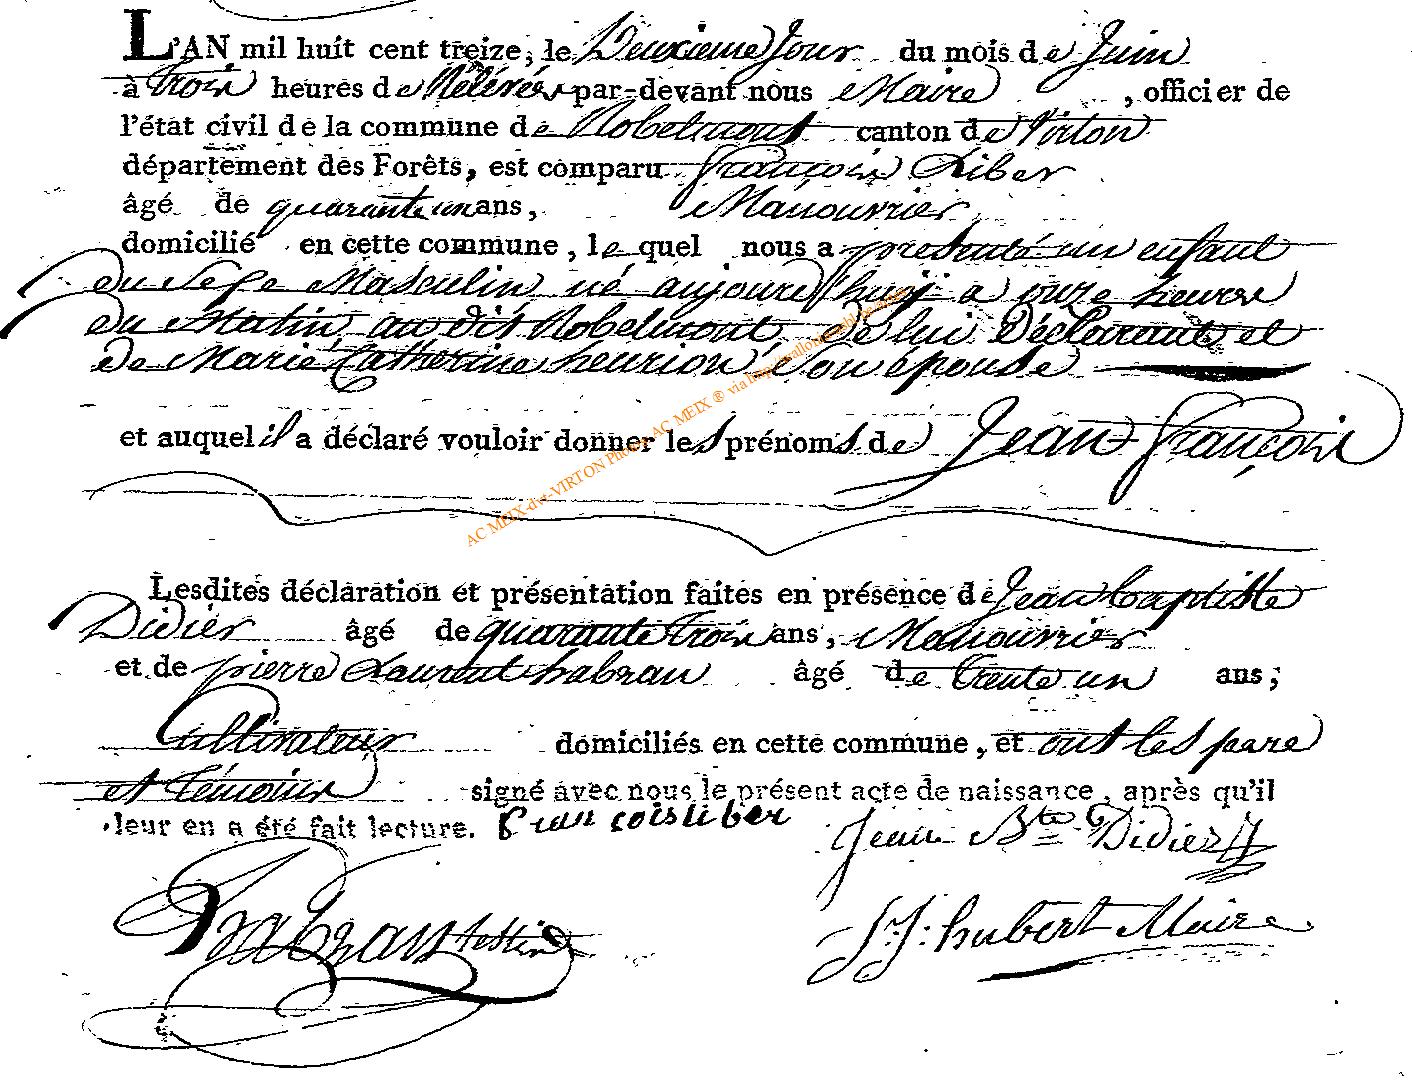 L'AN mil huit cent treize, le Deuxieme Jour du mois de Juin
à trois heures de Rélévée par-devant nous Maire , officier de
l'état civil de la commune de Robelmont canton de Virton
département des Forêts, est comparu françois Liber
âgé de quarante un ans, Manouvrier
domicilié en cette commune, le quel nous a presenté un enfant
du Sexe Masculin né aujourd'huij a onze heures
du Matin au dit Robelmont de lui Déclarant et
de Marie Catherine henrion Son épouse
et auquel il a déclaré vouloir donner les prénoms de Jean françois
AC MEIX-dvt-VIRTON Photo AC MEIX ® via
Lesdites déclaration et présentation faites en présence de Jean baptiste
Didier âgé de quarante trois ans, Manouvrier
et de pierre Laurent habran âgé de trente un ans;
Cultivateur domiciliés en cette commune, et ont les pere
et témoins signé avec nous le présent acte de naissance, après qu'il
leur en a été fait lecture. francois liber Jean Bte Didier
habran testin
J: J: hubert Maire